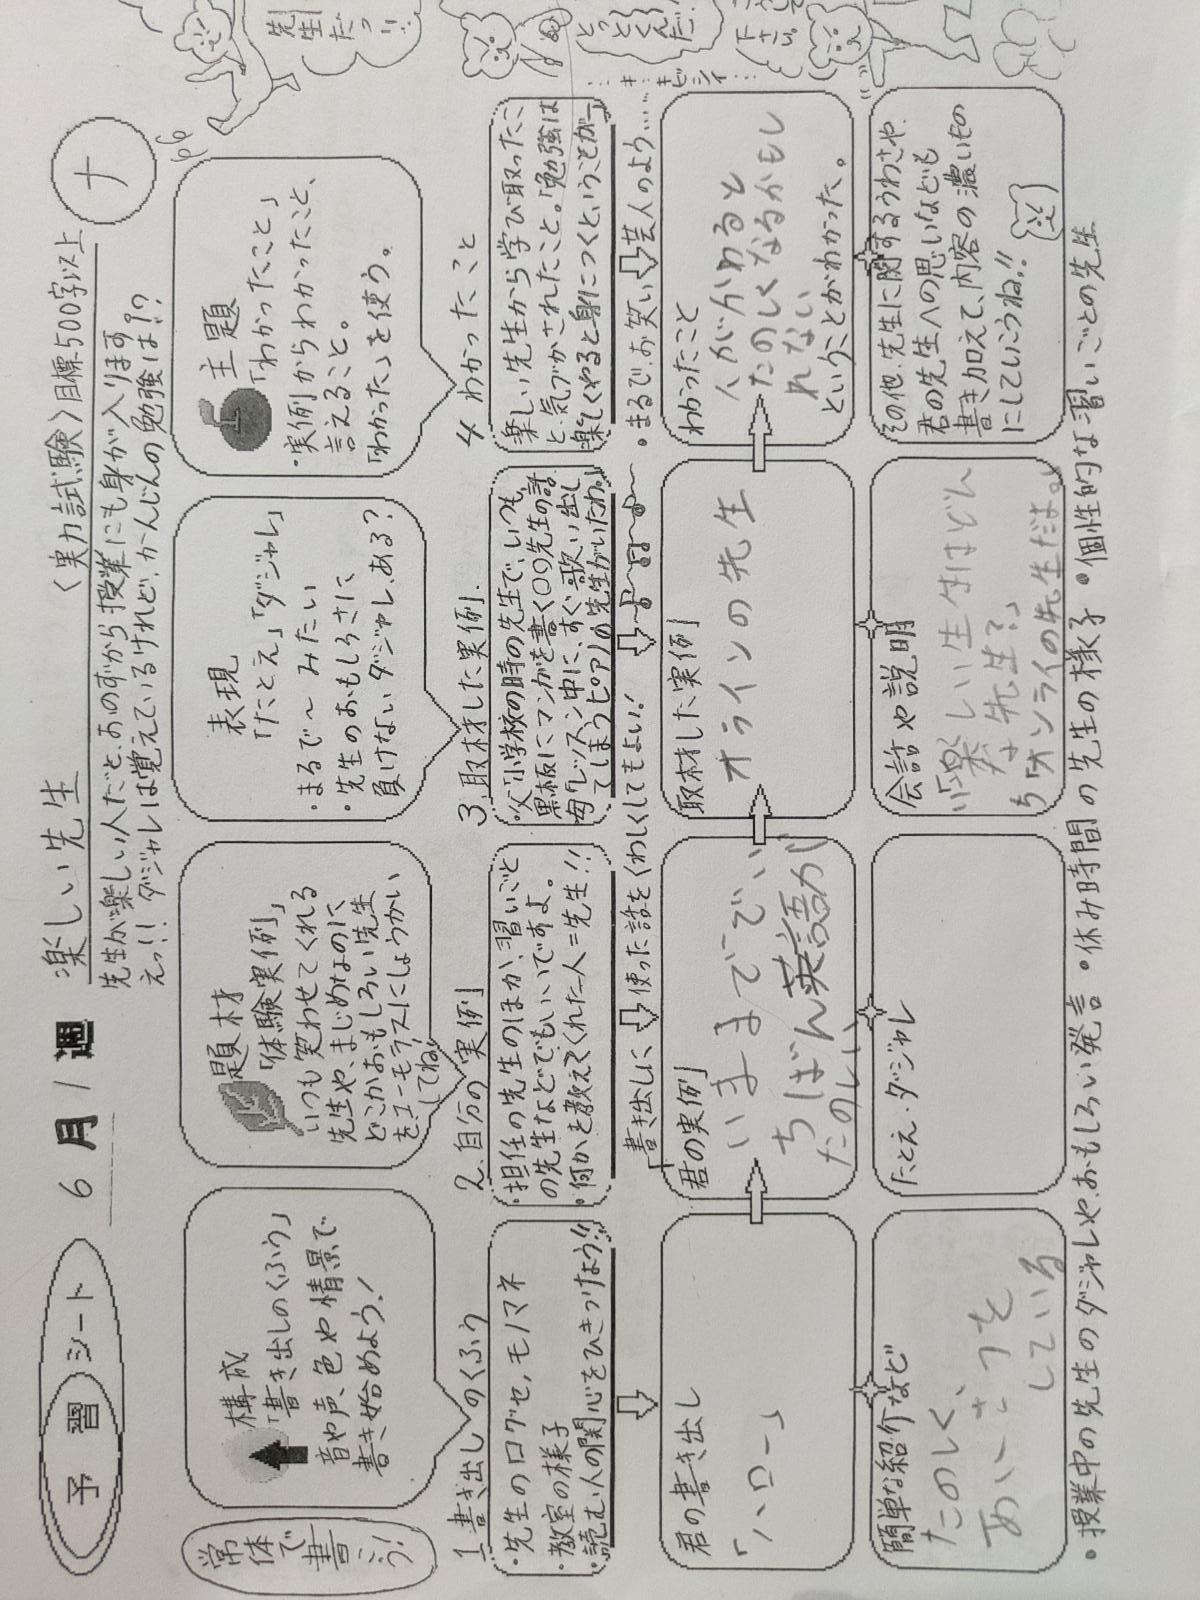 予習シート
6月1週
楽しい先生
〈実力試験〉目標500字以上
ナ
先生が楽しい人だと、おのずから授業にも身が入ります。
えっ!! ダジャレは覚えているけれど、かんじんの勉強は!?
常体で書こう!
構成
「書き出しのくふう」
音や声、色や情景で
書き始めよう!
題材
「体験実例」
いつも笑わせてくれる
先生や、まじめなのに
どこかおもしろい先生
をユーモラスにしょうかい
してね!
表現
「たとえ」「ダジャレ」
・まるで〜みたい
・先生のおもしろさに
負けないダジャレ、ある?
主題
「わかったこと」
・実例からわかったこと、
言えること。
「わかった」を使う。
1 書き出しのくふう
・先生の口グセ、モノマネ
・教室の様子
・読む人の関心をひきつけよう!!
2. 自分の実例
・担任の先生のほか、習いごと
の先生などでもいいですよ。
・何かを教えてくれた人=先生!!
3. 取材した実例.
・父「小学校の時の先生で、いつも、
黒板にマンガを書く〇〇先生の話
母「レッスン中に、すぐ歌い出し
てしまうピアノの先生がいたわ。」
4 わかったこと
楽しい先生から学び取ったこ
と、気づかされたこと。「勉強は
楽しくやると身につくということが〜」
書き出しに使った話をくわしくしてもよい!
・まるで、お笑い芸人のよう……
君の書き出し
「ハロー」
君の実例
いままででい
ちばん英語が
たのしい
取材した実例
オラインの先生
わかったこと
人がかわると
たのしくなるかもし
れない
ということがわかった。
簡単な紹介など
たのしく
あいさつを
している
たとえ・ダジャレ
会話や説明
「楽しい先生はどん
な先生?」
ち「オンライの先生だよ。」
その他、先生に関するうわさや、
君の先生への思いなども
書き加えて、内容の濃いもの
にしていこうね!!
・授業中の先生のダジャレや、おもしろい発言 ・休み時間の先生の様子 ・個性的な習いごとの先生